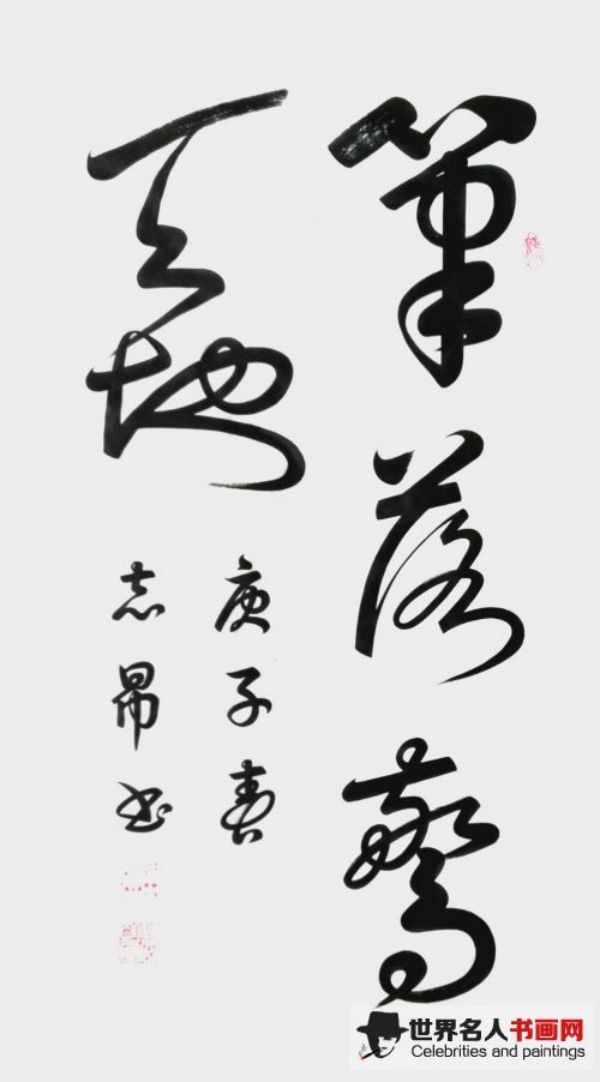 筆落驚
天地
庚子春
志昂书
世界名人书画网
Celebrities and paintings